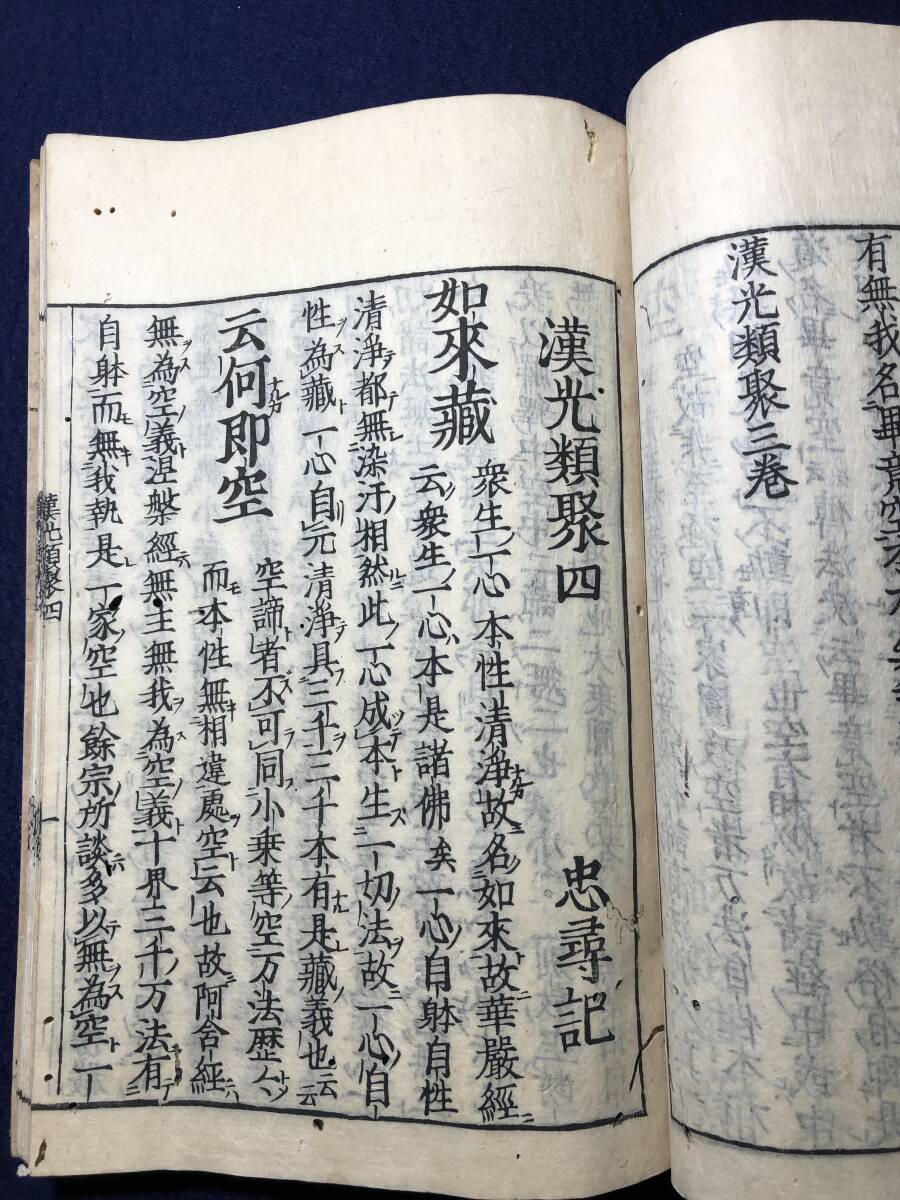 有無我名畢竟空
漢光類聚三巻
漢光類聚四 忠尋記
如來藏 衆生一心本性清淨故名如來故華嚴經ニ
云衆生ノ一心ハ本是諸佛矣一心ノ自躰自性
清淨ニテ都無染汙相然ルニ此ノ一心成ツテ本ト生ス二一切ノ法ヲ故ニ一心ノ自
性ヲ為ス藏ト一心自リ元清淨ニテ具フ三千ヲ三千本有ナル是レ藏ノ義也云云
云何ナルカ即空 空諦ト者不ズ可ラ同フ小乗等ノ空ニ万法歴々トシ
而モ本性無キ相違處ヲ空ト云也故ニ阿含經ニハ
無ヲ為ス空ノ義ト涅槃經ニハ無主無我ヲ為ス空ノ義ト十界三千ノ万法有テ
自躰而モ無キ我執是レ一家ノ空也餘宗ノ所談ニ多以テ無ヲ為ス空ト一
漢光類聚四
一